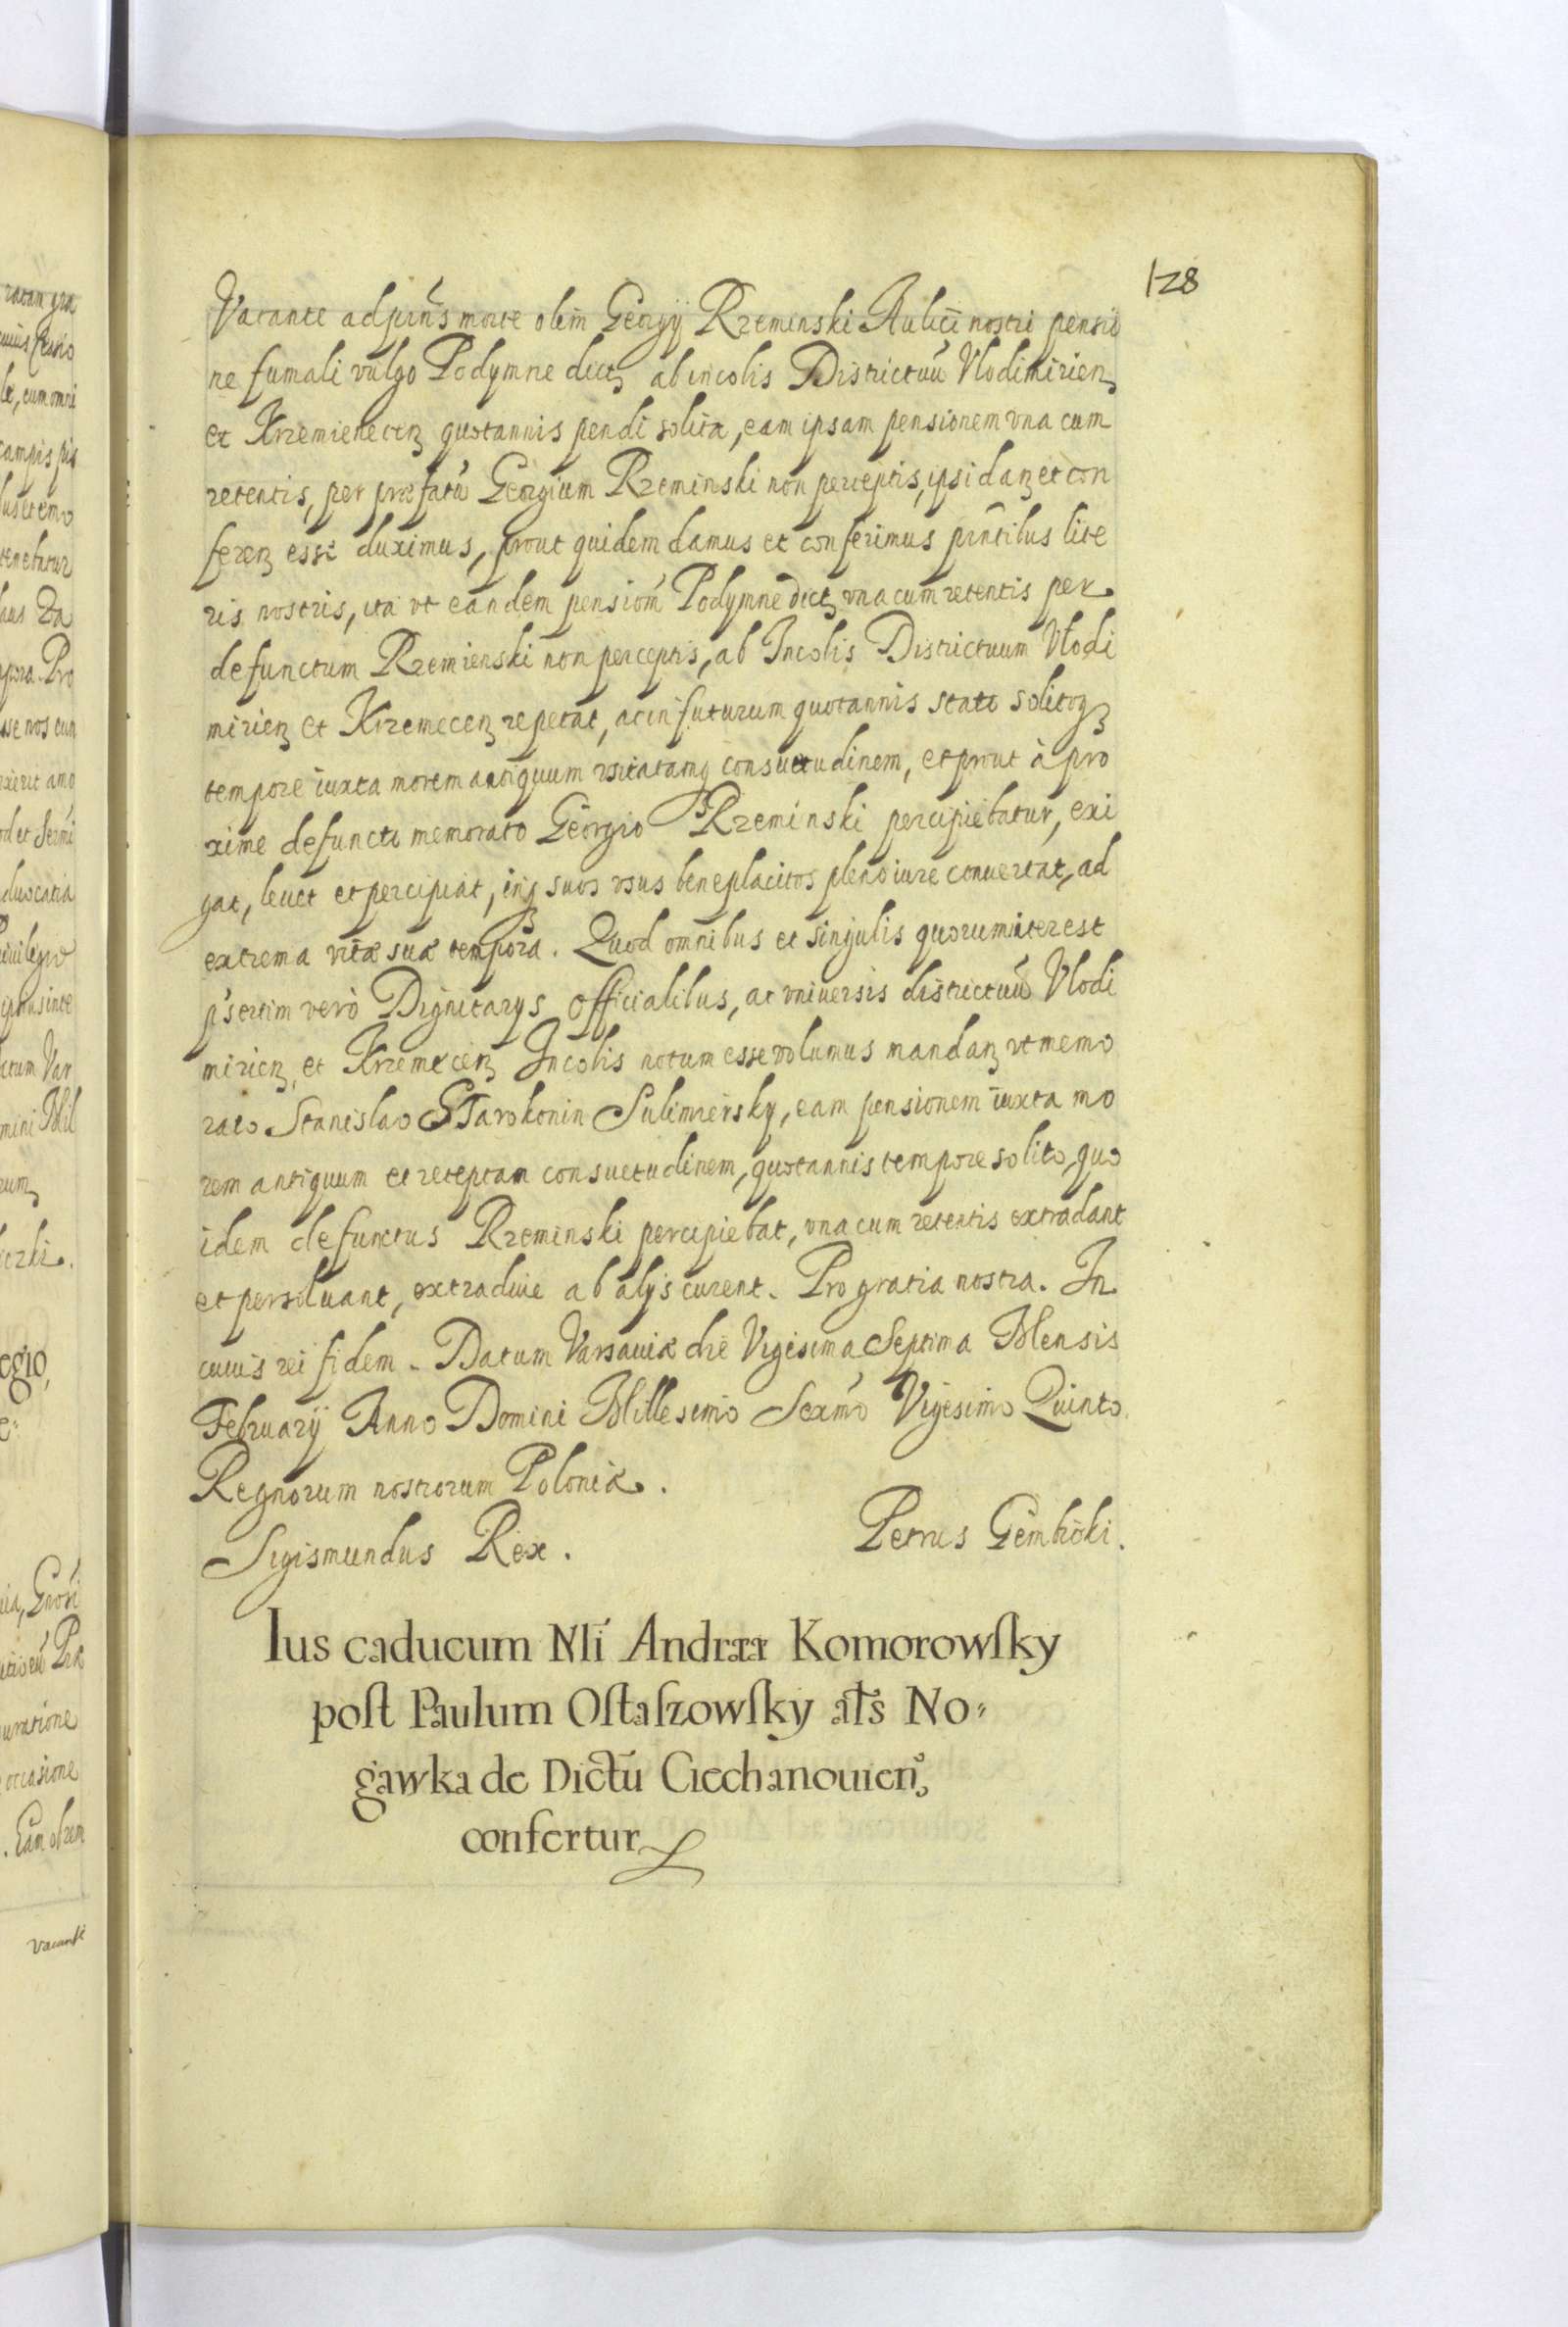 128
Vacante ad pn̄s morte olim Georgij Rzeminski Aulici nostri pensio
ne fumali vulgo Podymne dictȝ ab incolis Districtuū Vlodimirienȝ
et Krzemienecenȝ quotannis pendi solita, eam ipsam pensionem vna cum
retentis, per præfatū Georgium Rzeminski non perceptis, ipsi danȝ et con
ferenȝ esse duximus, prout quidem damus et conferimus pn̄tibus lite
ris nostris, ita vt eandem pensiom̄ Podymne dictȝ vna cum retentis per
defunctum Rzemienski non perceptis, ab Incolis Districtuum Vlodi
mirienȝ et Krzemecenȝ repetat, ac in futurum quotannis stato solitoqȝ
tempore iuxta morem antiquum vsitatamqȝ consuetudinem, et prout à pro
xime defuncto memorato Georgio Rzeminski percipiebatur, exi
gat, leuet et percipiat, inqȝ suos vsus beneplacitos pleno iure conuertat, ad
extrema vitæ suæ tempora. Quod omnibus et singulis quorum interest
p̄sertim verò Dignitarijs Officialibus, ac vniuersis districtuū Vlodi
mirienȝ et Krzemecenȝ Incolis notum esse volumus mandanȝ vt memo
rato Stanislao Starokonin Sulimiersky, eam pensionem iuxta mo
rem antiquum et receptam consuetudinem, quotannis tempore solito, quo
idem defunctus Rzeminski percipiebat, vna cum retentis extradant
et persoluant, extradiue ab alijs curent. Pro gratia nostra. In
cuius rei fidem. Datum Varsauiæ die Vigesima Septima Mensis
Februarij Anno Domini Millesimo Sexm̄o Vigesimo Quinto.
Regnorum nostrorum Poloniæ.
Sigismundus Rex. Petrus Gembicki.
Ius caducum Nli Andreæ Komorowſky
poſt Paulum Oſtaſzowſky als No⸗
gawka de Dictū Ciechanouien̄
confertur